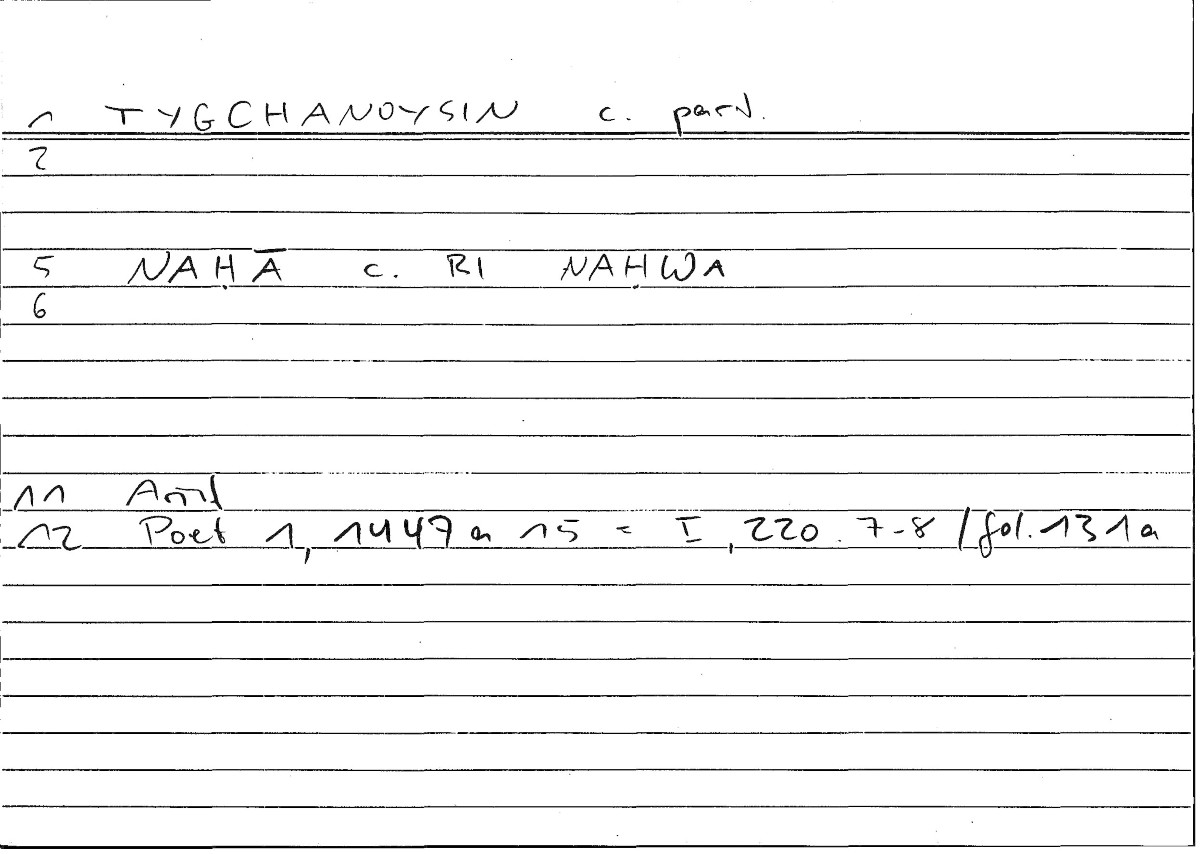 1 TYGCHANOYSIN c. part.
2
5 NAḤĀ c. RI NAḤWA
6
11 Arist
12 Poet 1, 1447 a 15 = I, 220. 7-8 / fol. 131a